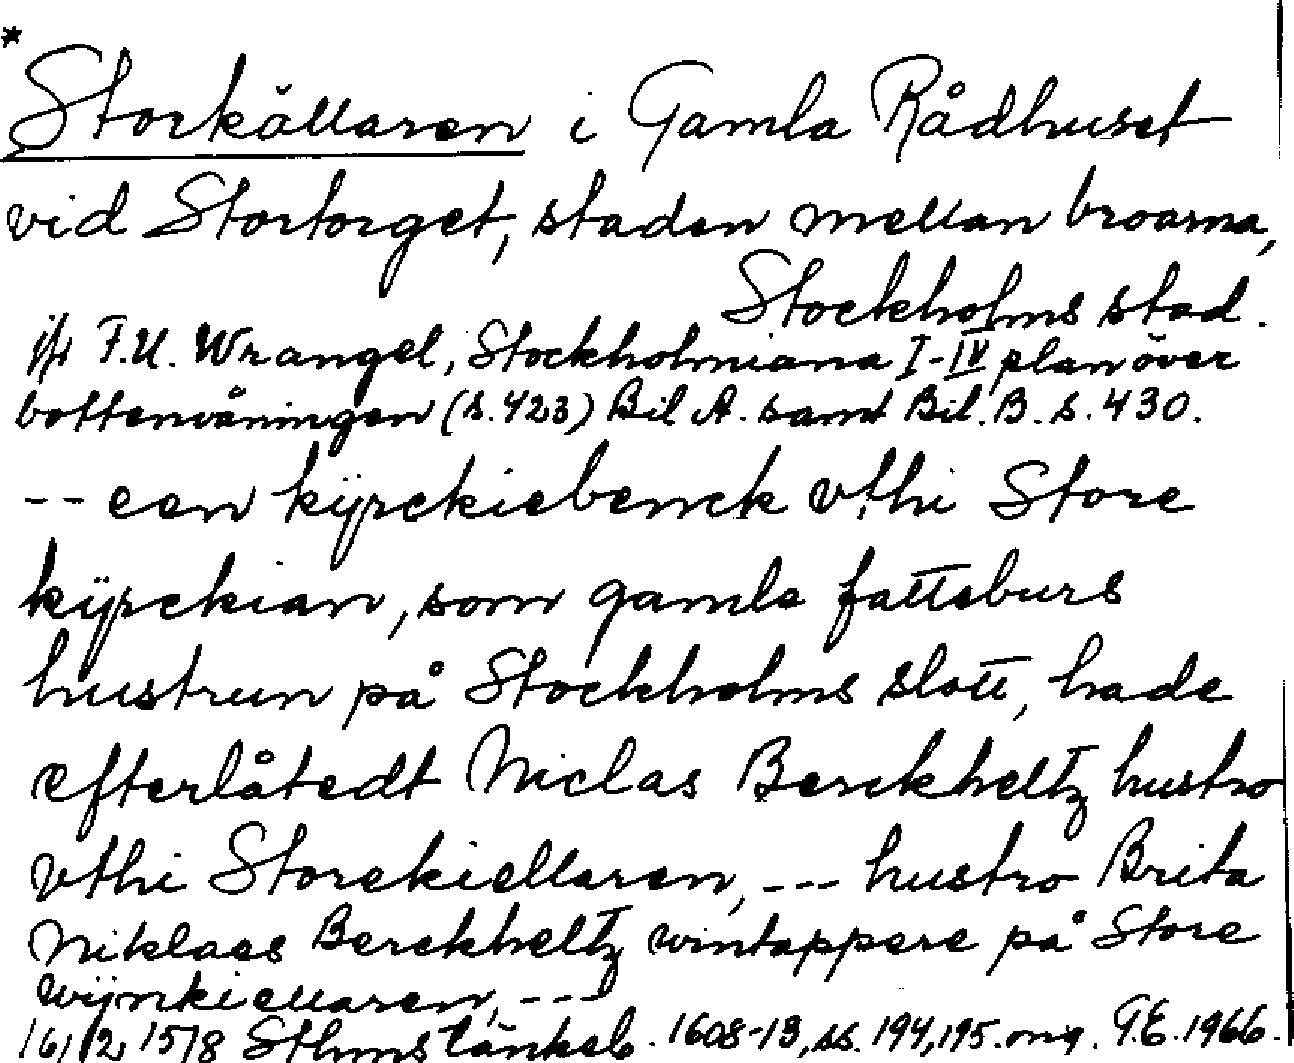 *
Storkällaren i Gamla Rådhuset
vid Stortorget, staden mellan broarna,
Stockholms stad.
jfr F.U. Wrangel, Stockholmiana I-IV plan över
bottenvåningen (s. 423) Bil A. samt Bil. B. s. 430.
-- een kÿrckiebenck vthi Store
kÿrckian, som gamle fatteburs
hustrun på Stockholms slott, hade
efterlåtedt Niclas Berckheltz hustro
vthi Storekiellaren, --- hustro Brita
Niklaes Berckheltz wintappere på Store
wijnkiellaren, ---
16/12 1578 Sthms tänkeb. 1608-13, ss. 194, 195. G.E. 1966.